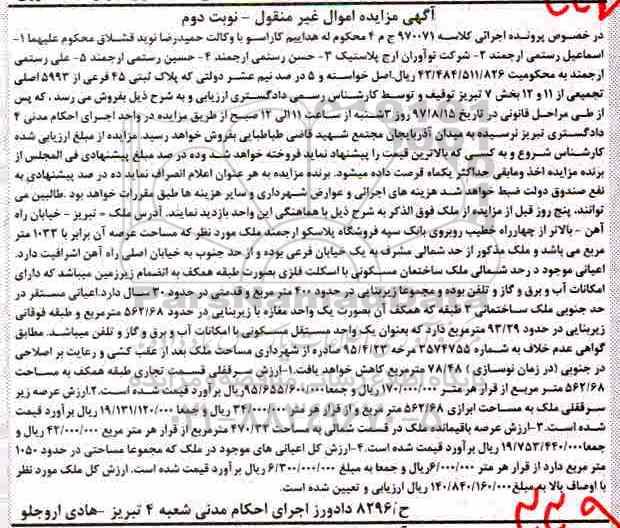 آگهی مزایده اموال غیر منقول - نوبت دوم
در خصوص پرونده اجرائی کلاسه ۹۷۰۰۷۱ ج م ۴ محکوم له هداییم کاراسو با وکالت حمیدرضا نوید قشلاق محکوم علیهما ۱-
اسماعیل رستمی ارجمند ۲- شرکت نوآوران ارج پلاستیک ۳- حسن رستمی ارجمند ۴- حسین رستمی ارجمند ۵- علی رستمی
ارجمند به محکومیت ۴۳/۴۸۴/۵۱۱/۸۲۶ ریال.اصل خواسته و ۵ در صد نیم عشر دولتی که پلاک ثبتی ۴۵ فرعی از ۵۹۹۳ اصلی
تجمیعی از ۱۱ و ۱۲ بخش ۷ تبریز توقیف و توسط کارشناس رسمی دادگستری ارزیابی و به شرح ذیل بفروش می رسد ، که پس
از طی مراحل قانونی در تاریخ ۹۷/۸/۱۵ روز ۳شنبه از ساعت ۱۱الی ۱۲ صبح از طریق مزایده در واحد اجرای احکام مدنی ۴
دادگستری تبریز نرسیده به میدان آذربایجان مجتمع شهید قاضی طباطبایی بفروش خواهد رسید. مزایده از مبلغ ارزیابی شده
کارشناس شروع و به کسی که بالاترین قیمت را پیشنهاد نماید فروخته خواهد شد وده در صد مبلغ پیشنهادی فی المجلس از
برنده مزایده اخذ ومابقی حداکثر یکماه فرصت داده میشود. برنده مزایده به هر عنوان اعلام انصراف نماید ده در صد پیشنهادی به
نفع صندوق دولت ضبط خواهد شد هزینه های اجرائی و عوارض شهرداری و سایر هزینه ها طبق مقررات خواهد بود .طالبین می
توانند، پنج روز قبل از مزایده از ملک فوق الذکر به شرح ذیل با هماهنگی این واحد بازدید نمایند. آدرس ملک = تبریز - خیابان راه
آهن - بالاتر از چهارراه خطیب روبروی بانک سپه فروشگاه پلاسکو ارجمند ملک مورد نظر که مساحت عرصه آن برابر با ۱۰۳۳ متر
مربع می باشد و ملک مذکور از حد شمالی مشرف به یک خیابان فرعی بوده و از حد جنوب به خیابان اصلی راه آهن اشرافیت دارد.
اعیانی موجود د رحد شمالی ملک ساختمان مسکونی با اسکلت فلزی بصورت طبقه همکف به انضمام زیرزمین میباشد که دارای
امکانات آب و برق و گاز و تلفن بوده و مجموعا زیربنایی در حدود ۴۰۰ متر مربع و قدمتی در حدود ۳۰ سال دارد.اعیانی مستقر در
حد جنوبی ملک ساختمانی ۳ طبقه که همکف آن بصورت یک واحد مغازه با زیربنایی در حدود ۵۶۲/۶۸ مترمربع و طبقه فوقانی
زیربنایی در حدود ۹۳/۲۹ مترمربع دارد که بعنوان یک واحد مستقل مسکونی با امکانات آب و برق و گاز و تلفن میباشد. مطابق
گواهی عدم خلاف به شماره ۳۵۷۴۷۵۵ مرخه ۹۵/۴/۲۳ صادره از شهرداری مساحت ملک بعد از عقب کشی و رعایت بر اصلاحی
در جنوبی (در زمان نوسازی ) ۷۸/۴۸ مترمربع کاهش خواهد یافت.۱-ارزش سرقفلی قسمت تجاری طبقه همکف به مساحت
۵۶۲/۶۸ متر مربع از قرار هر متر ۱۷۰/۰۰۰/۰۰۰ریال و جمعا ۹۵/۶۵۵/۶۰۰/۰۰۰ریال برآورد قیمت شده است.۲.ارزش عرصه زیر
سرقفلی ملک به مساحت ابرازی ۵۶۲/۶۸ متر مربع و از قرار هر متر ۳۴/۰۰۰/۰۰۰ ریال و جمعا ۱۹/۱۳۱/۱۲۰/۰۰۰ ریال برآورد قیمت
شده است.۳-ارزش عرصه باقیمانده ملک در قسمت شمالی به مساحت ۴۷۰/۳۲ مترمربع از قرار هر متر مربع ۴۲/۰۰۰/۰۰۰ ریال و
جمعا۱۹/۷۵۳/۴۴۰/۰۰۰ ریال برآورد قیمت شده است.۴-ارزش کل اعیانی های موجود در ملک که مجموعا مساحتی در حدود ۱۰۵۰
متر مربع دارد از قرار هر متر ۶/۰۰۰/۰۰۰ریال و جمعا به مبلغ ۶/۳۰۰/۰۰۰/۰۰۰ ریال برآورد قیمت شده است. ارزش کل ملک مورد نظر
با اوصاف بالا به مبلغ۱۴۰/۸۴۰/۱۶۰/۰۰۰ ریال ارزیابی و تعیین شده است.
ح/۸۲۹۶ دادورز اجرای احکام مدنی شعبه ۴ تبریز -هادی اروجلو